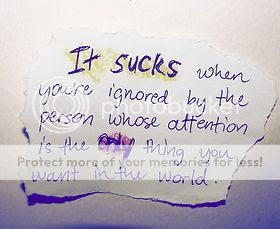 It sucks when
you're ignored by the
photobucket
person whose attention
is the only thing you
Protect more of your memories for less!
want in the world.